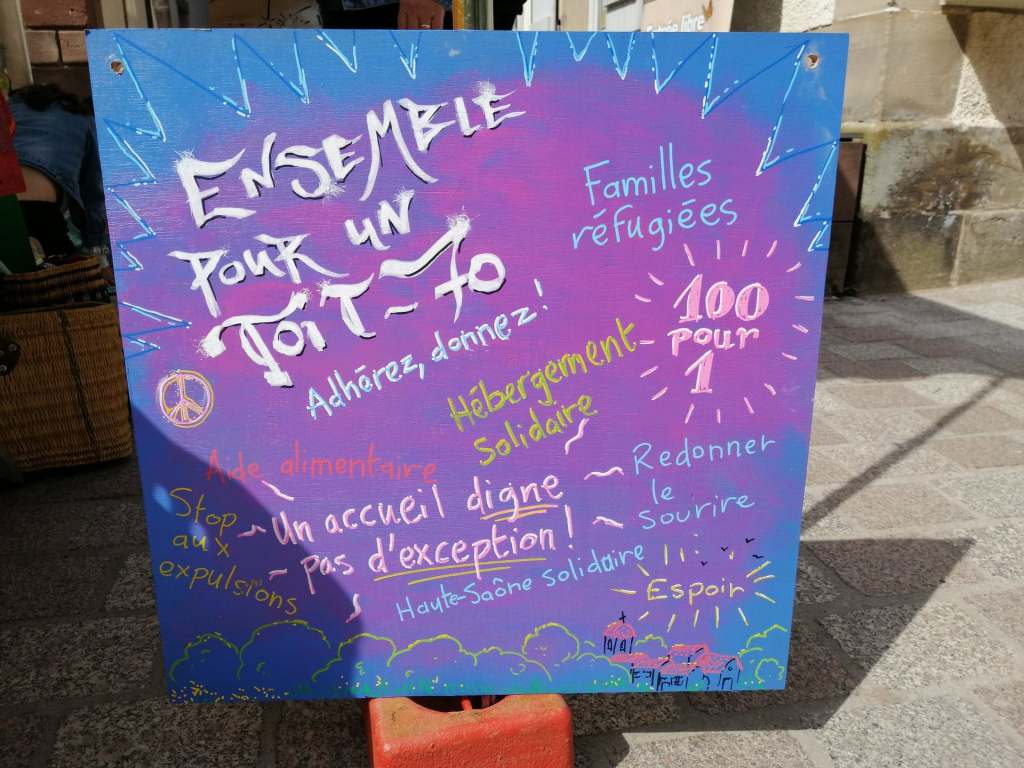 Entrée libre
ENSEMBLE
POUR UN
TOIT-70
Adhérez, donnez!
Familles
réfugiées
100
pour
1
Hébergement
Solidaire
Aide alimentaire
Stop
aux
expulsions
Un accueil digne
pas d'exception!
Redonner
le
sourire
Haute-Saône solidaire
Espoir